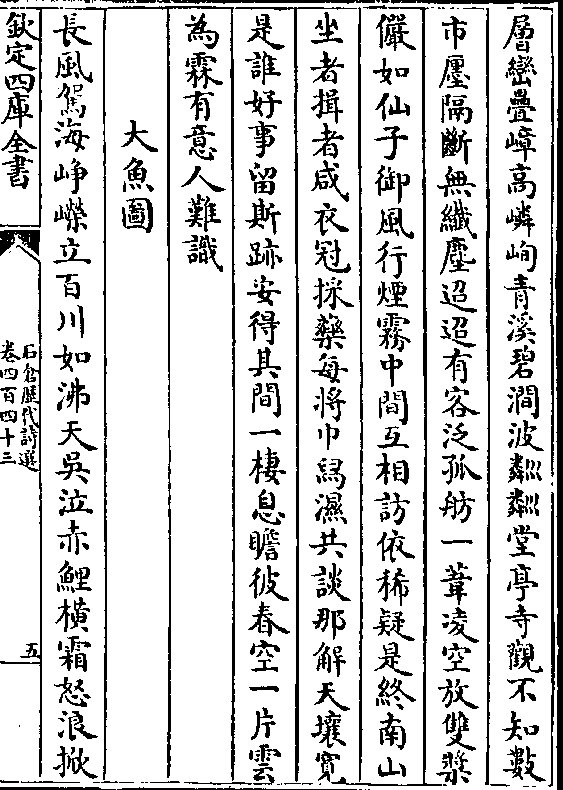 層巒疊嶂高嶙峋青溪碧澗波粼粼堂亭寺觀不知數
市廛隔斷無纖塵迢迢有客泛孤舫一葦凌空放雙槳
儼如仙子御風行煙霧中間互相訪依稀疑是終南山
坐者揖者咸衣冠採藥每將巾舄濕共談那解天壤寛
是誰好事留斯跡安得其間一棲息瞻彼春空一片雲
為霖有意人難識
大魚圖
長風駕海崢嶸立百川如沸天吳泣赤鯉橫霜怒浪掀
欽定四庫全書
石倉歷代詩選
卷四百四十三
五